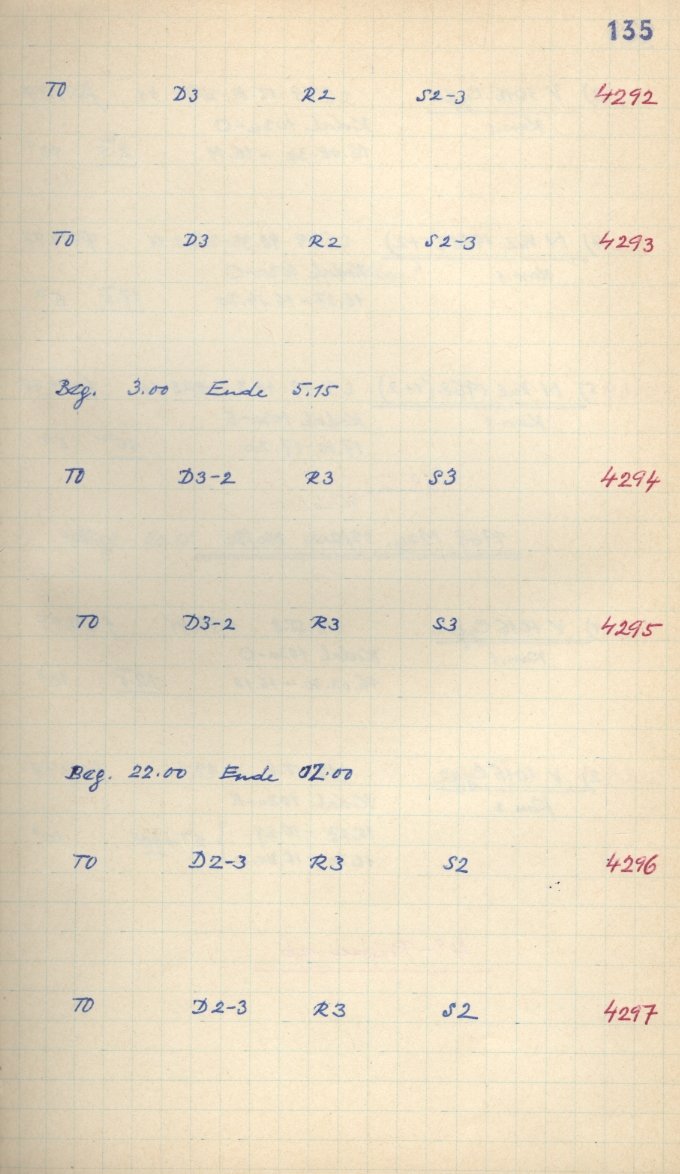 135
T0 D3 R2 S2-3 4292
T0 D3 R2 S2-3 4293
Beg. 3.00 Ende 5.15
T0 D3-2 R3 S3 4294
T0 D3-2 R3 S3 4295
Beg. 22.00 Ende 02.00
T0 D2-3 R3 S2 4296
T0 D2-3 R3 S2 4297